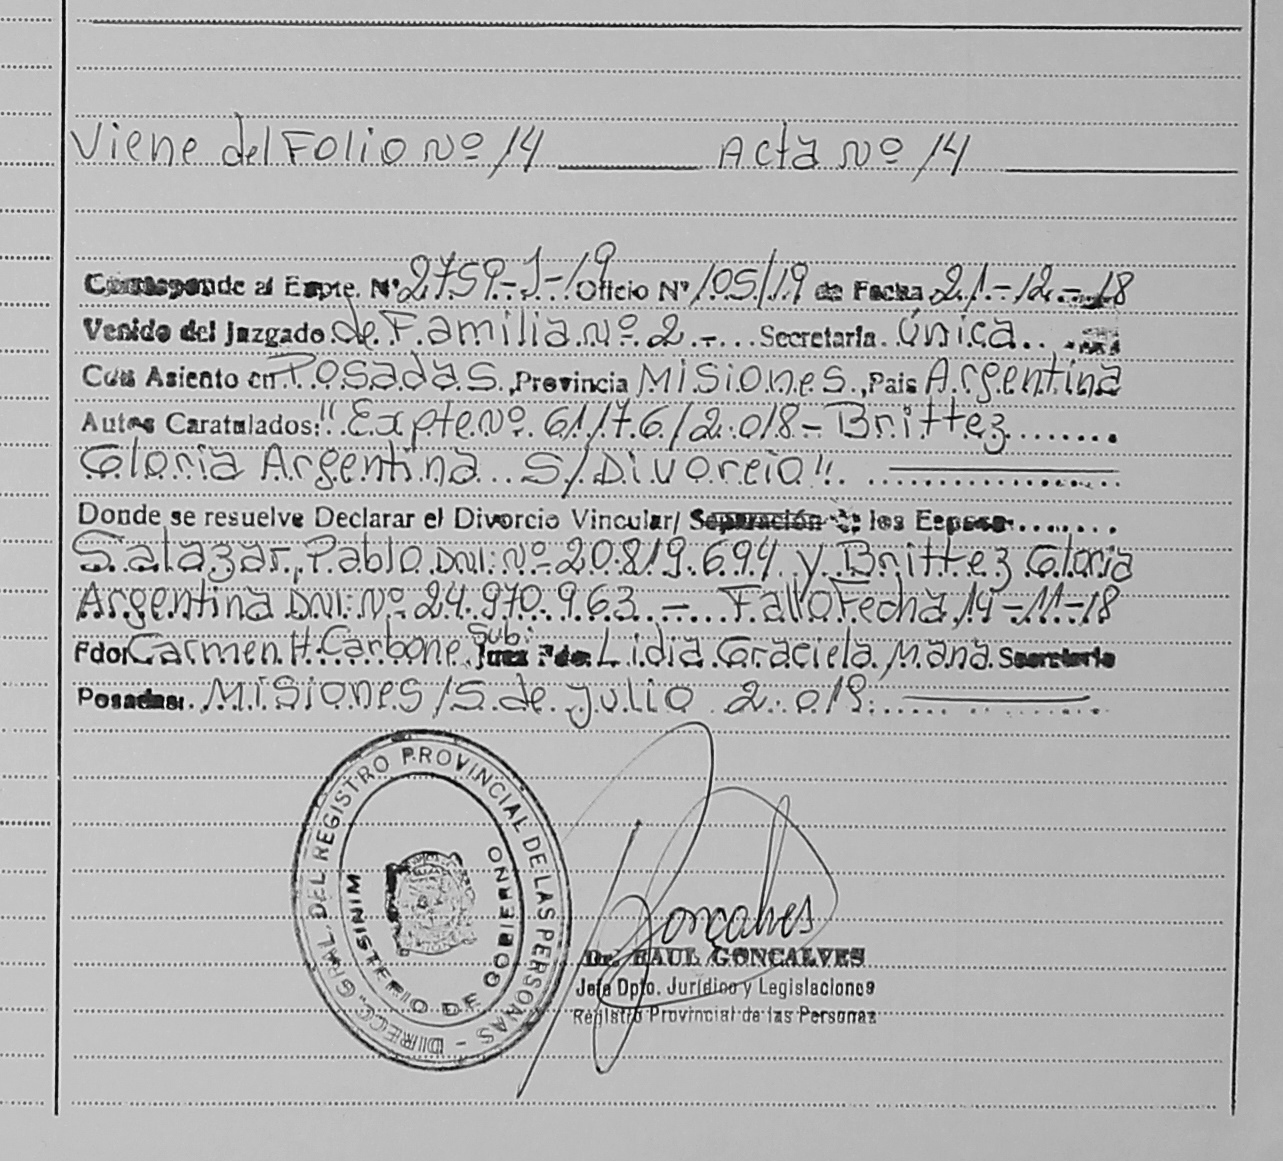 Viene del Folio Nº 14 Acta Nº 14
Corresponde al Expte. Nº 2759-J-19 Oficio Nº 105/19 de Fecha 21-12-18
Venido del Juzgado de Familia Nº 2 - Secretaría Única
Con Asiento en Posadas, Provincia Misiones, Pais Argentina
Autos Caratulados: "Expte Nº 61176/2018 - Brittez
Gloria Argentina S/Divorcio"
Donde se resuelve Declarar el Divorcio Vincular/ Separación de los Esposos
Salazar, Pablo DNI: Nº 20.819.694 y Brittez Gloria
Argentina DNI: Nº 24.970.963 - Fallo Fecha 14-11-18
Fdo: Carmen H. Carbone Sub. Juez Fdo: Lidia Graciela Maná Secretario
Posadas: Misiones 15 de julio 2.019
DIRECC. GRAL. DEL REGISTRO PROVINCIAL DE LAS PERSONAS -
MINISTERIO DE GOBIERNO
Goncalves
Dr. RAUL GONCALVES
Jefe Dpto. Jurídico y Legislaciones
Registro Provincial de las Personas